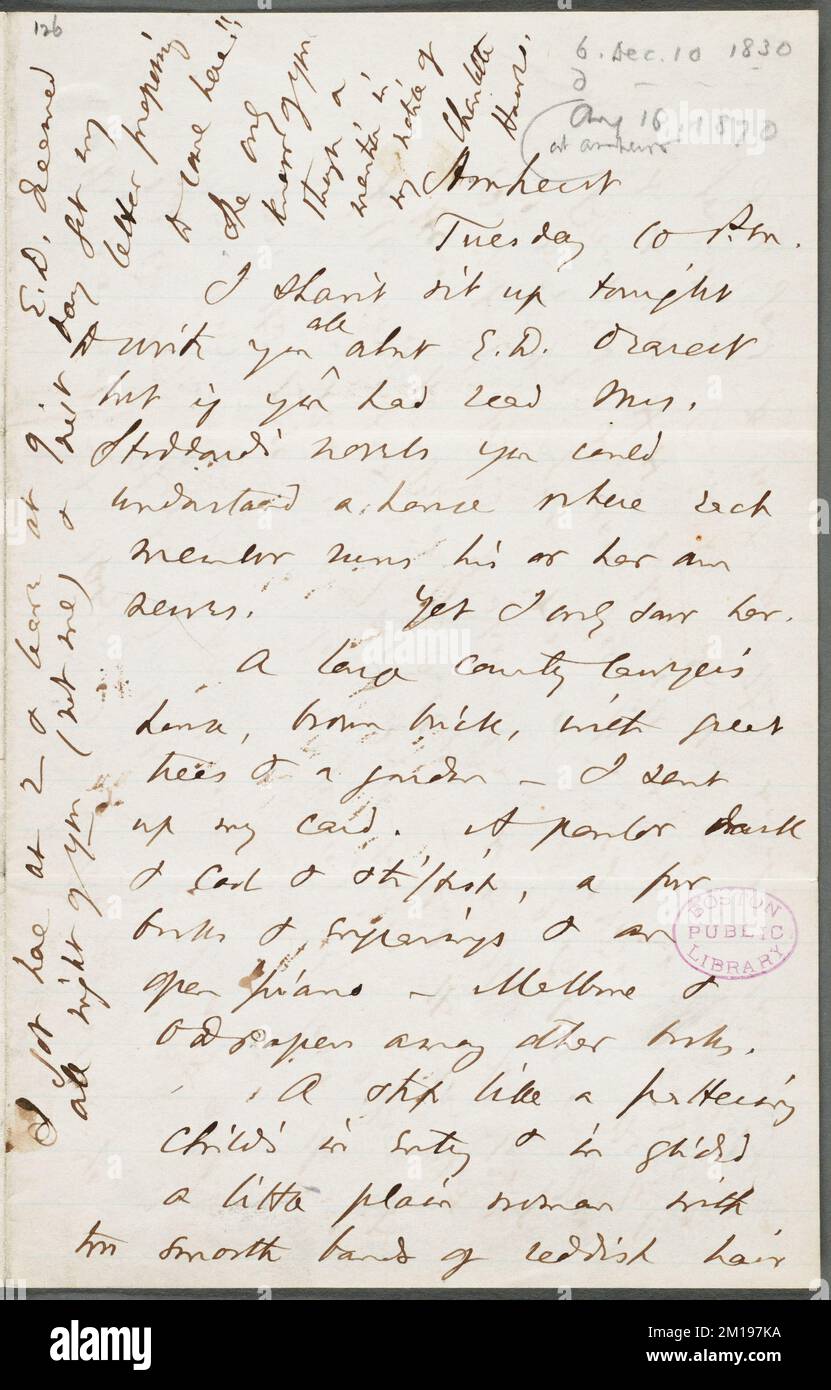 126
6. Dec. 10 1830
d - - -
Aug 16, 1870
at Amherst
Amherst
Tuesday 10 P.m.
I shan't sit up tonight
to write you all abt E.D. dearest
but if you had read Mrs.
Stoddard's novels you could
understand a house where each
member runs his or her own
selves. Yet I only saw her.
A large county lawyer's
house, brown brick, with great
trees & a garden – I sent
up my card. A parlor dark
& cool & stiffish, a few
books & engravings & an
open piano – Malbone &
OD papers among other books.
A step like a pattering
child's in entry & in glided
a little plain woman with
two smooth bands of reddish hair
I got here at 2 & leave at 9. E.D. dreamed
all night of you (not me) & next day got my
letter proposing
to come here!!
She only
knew of you
through a
mention in
my notice of
Charlotte
Hawes.
BOSTON
PUBLIC
LIBRARY
alamy
alamy
Image ID: 2M197KA
www.alamy.com